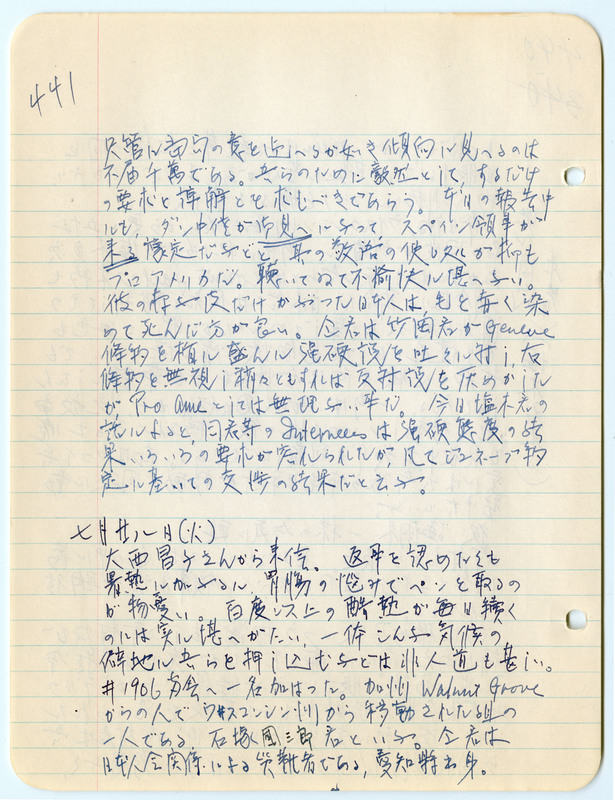 441
只管に当局の意を迎へるが如き傾向に見へるのは
不届千萬である。吾らのために敢然として、するだけ
の要求と弁解とを求むべきであらう。本日の報告中
にも、ダン中佐が会見へに来って、スペイン領事が
来る豫定だなどと、其の敬語の使ひ方が抑も
プロアメリカだ。聴いてゐて不愉快に堪へない。
彼の様な皮だけかぶった日本人は毛を赤く染
めて死んだ方が良い。仝君は竹岡君がGeneve
條約を楯に盛んに強硬説を吐くに対し、右
條約を無視し稍々ともすれば反対説を仄めかした
が Pro Ameとしては無理ない事だ。今日塩木君の
話によると、同君等のInterneesは強硬態度の結
果いろいろの要求が容れられたが、凡てジュネーブ約
定に基いての交渉の結果だと云ふ。
七月廿八日(火)
大西昌子さんから来信。返事を認めたくも
暑熱に加ふるに、胃腸の悩みでペンを取るの
が物憂い。百度以上の酷熱が毎日続く
のには実に堪へがたい、一体こんな気候の
僻地に吾らを押し込むなどは非人道も甚しい。
#1906号舎へ一名加はった。加州 Walnut Grove
からの人でウヰスコンシン州から移動された組の
一人である 石塚国三郎君といふ。仝君は
日本人会関係による災難者である、愛知縣出身。